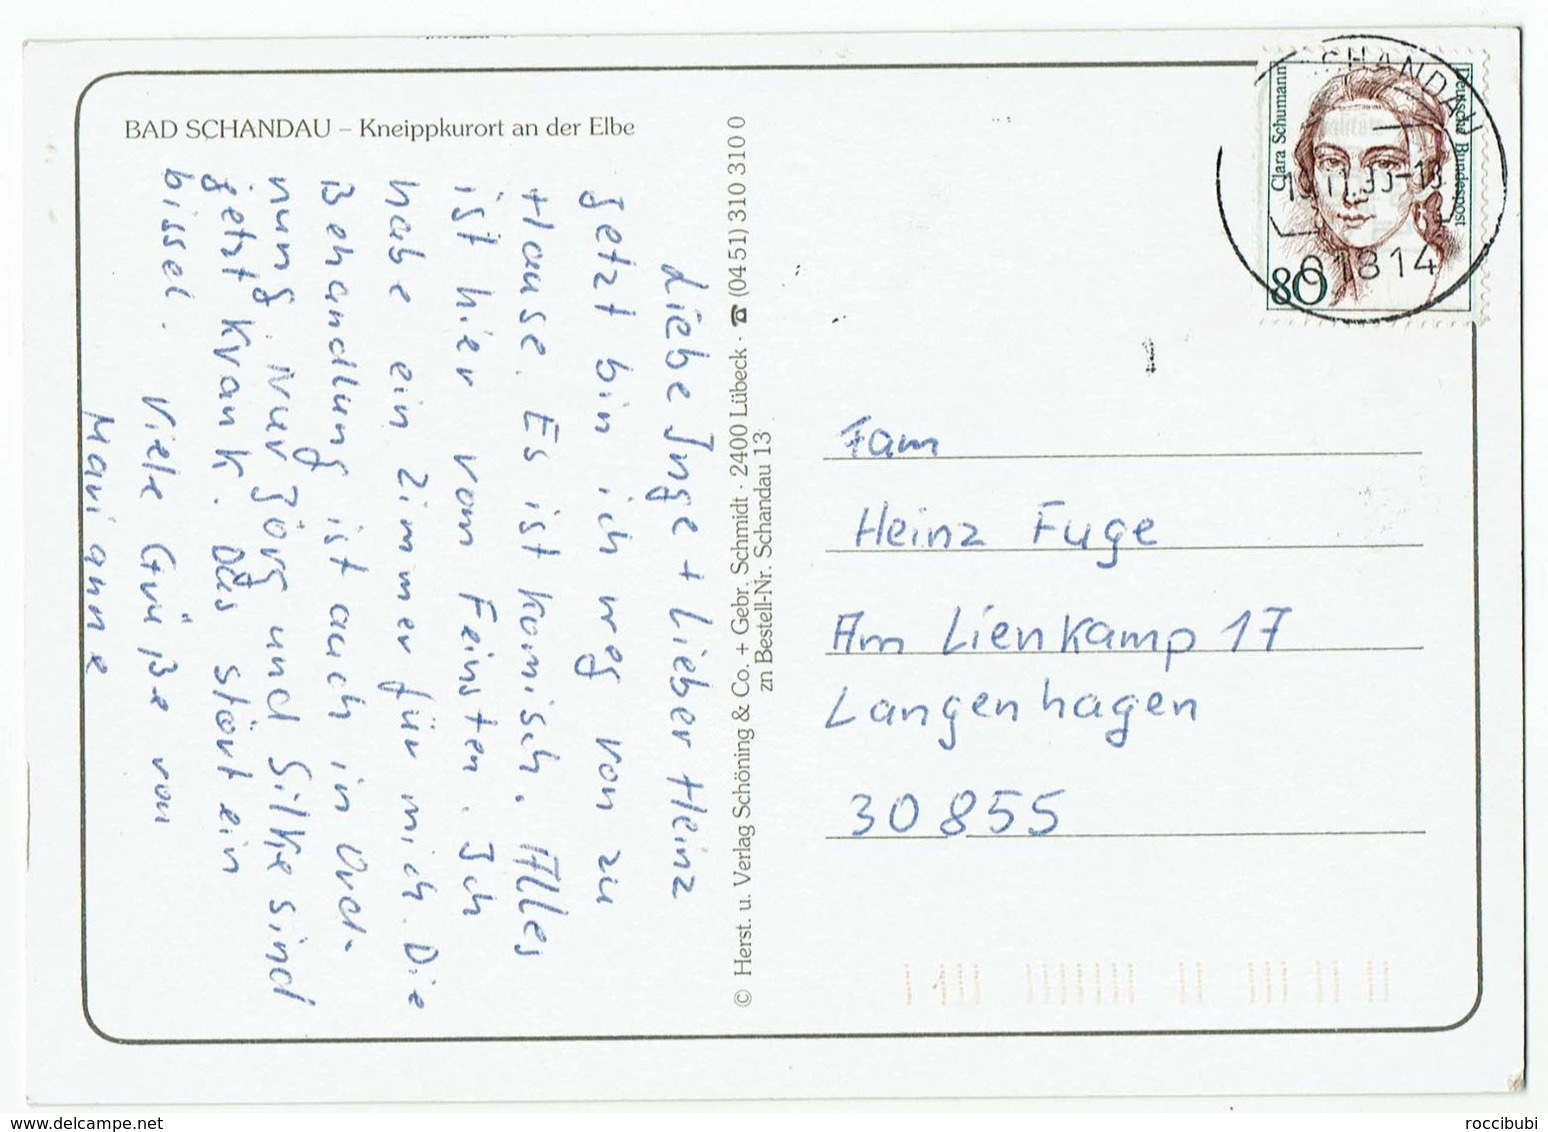 BAD SCHANDAU – Kneippkurort an der Elbe
Liebe Inge + Lieber Heinz
Jetzt bin ich weg von zu
Hause. Es ist komisch. Alles
ist hier vom Feinsten. Ich
habe ein Zimmer für mich. Die
Behandlung ist auch in Ord-
nung. Nur Jörg und Silke sind
jetzt krank. Das stört ein
bissel. Viele Grüße von
Marianne
© Herst. u. Verlag Schöning & Co. + Gebr. Schmidt · 2400 Lübeck · ☎ (04 51) 310 310 0
zn Bestell-Nr. Schandau 13
Clara Schumann
Deutsche Bundespost
80
SCHANDAU
01814
Fam
Heinz Fuge
Am Lienkamp 17
Langenhagen
30855
www.delcampe.net
roccibubi